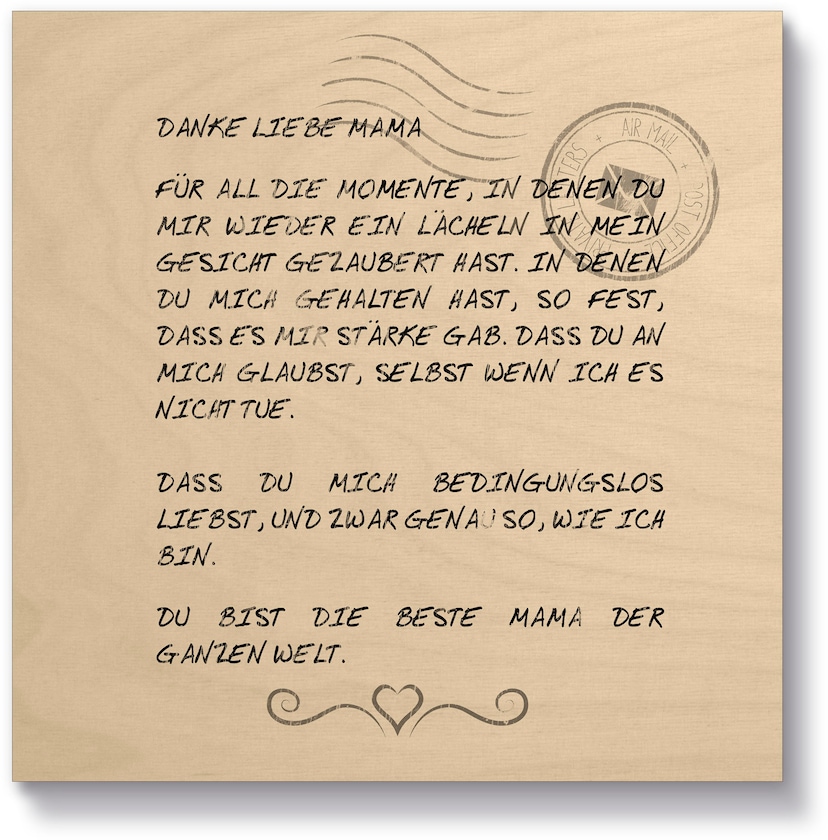 DANKE LIEBE MAMA
FÜR ALL DIE MOMENTE, IN DENEN DU
MIR WIEDER EIN LÄCHELN IN MEIN
GESICHT GEZAUBERT HAST. IN DENEN
DU MICH GEHALTEN HAST, SO FEST,
DASS ES MIR STÄRKE GAB. DASS DU AN
MICH GLAUBST, SELBST WENN ICH ES
NICHT TUE.
DASS DU MICH BEDINGUNGSLOS
LIEBST, UND ZWAR GENAU SO, WIE ICH
BIN.
DU BIST DIE BESTE MAMA DER
GANZEN WELT.
AIR MAIL + POST OFFICE